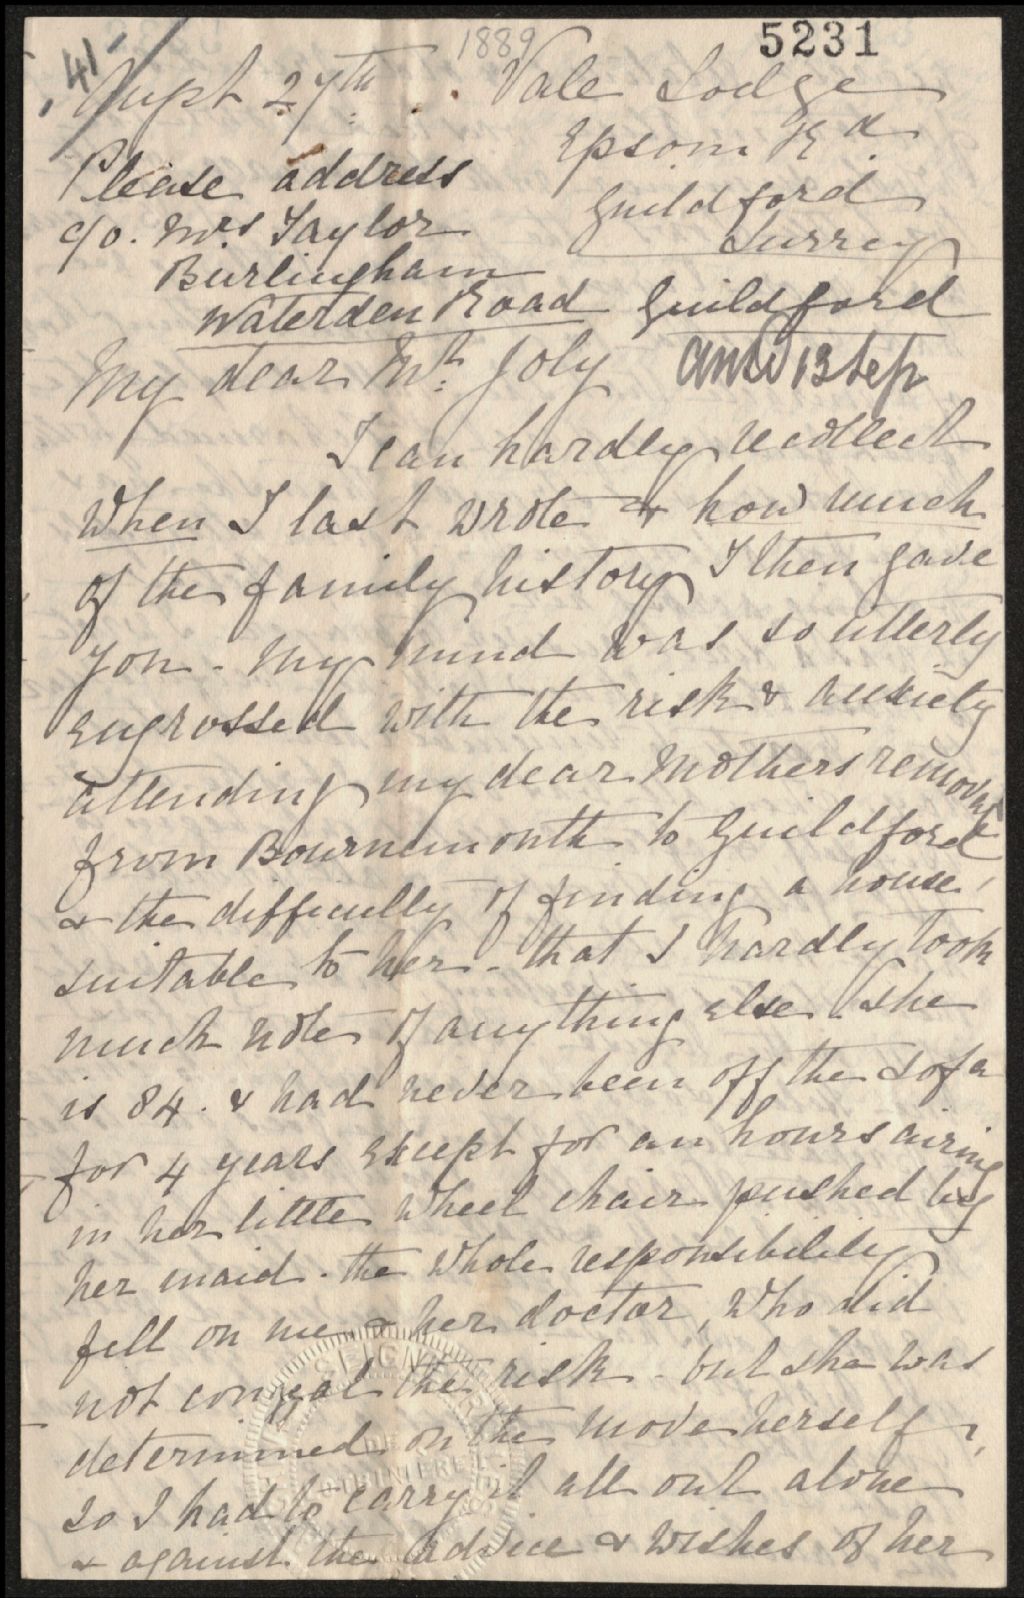 41
1889
5231
Augst 27th. Vale Lodge
Epsom Rd.
Guildford
Surrey
Please address
c/o. Mrs Taylor
Burlingham
Waterden Road Guildford
My dear Mr. Joly answd 13 Sep
I can hardly recollect
when I last wrote & how much
of the family history I then gave
you - My mind was so utterly
engrossed with the risk & anxiety
attending my dear Mothers removal
from Bournemouth to Guildford
& the difficulty of finding a house
suitable to her - that I hardly took
much note of anything else. She
is 84. & had never been off the sofa
for 4 years except for an hours airing
in her little wheel chair pushed by
her maid. the whole responsibility
fell on me & her doctor, who did
not conceal the risk - but she was
determined on the move herself,
so I had to carry it all out alone
& against the advice & wishes of her
SEIGNEUR
DE